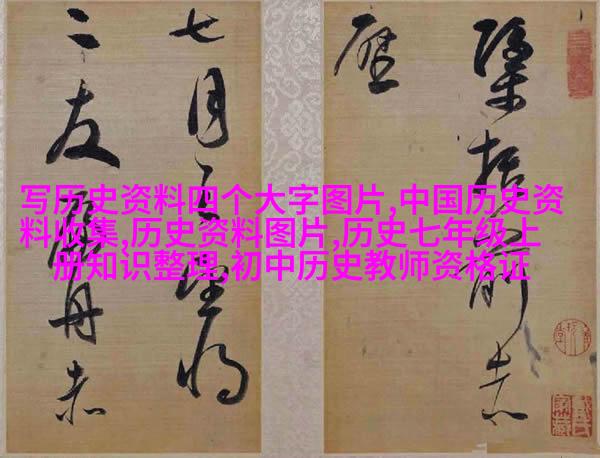 写历史资料四个大字图片,中国历史资
料收集,历史资料图片,历史七年级上
册知识整理,初中历史教师资格证
括前赤
壁
七月望
二友赤